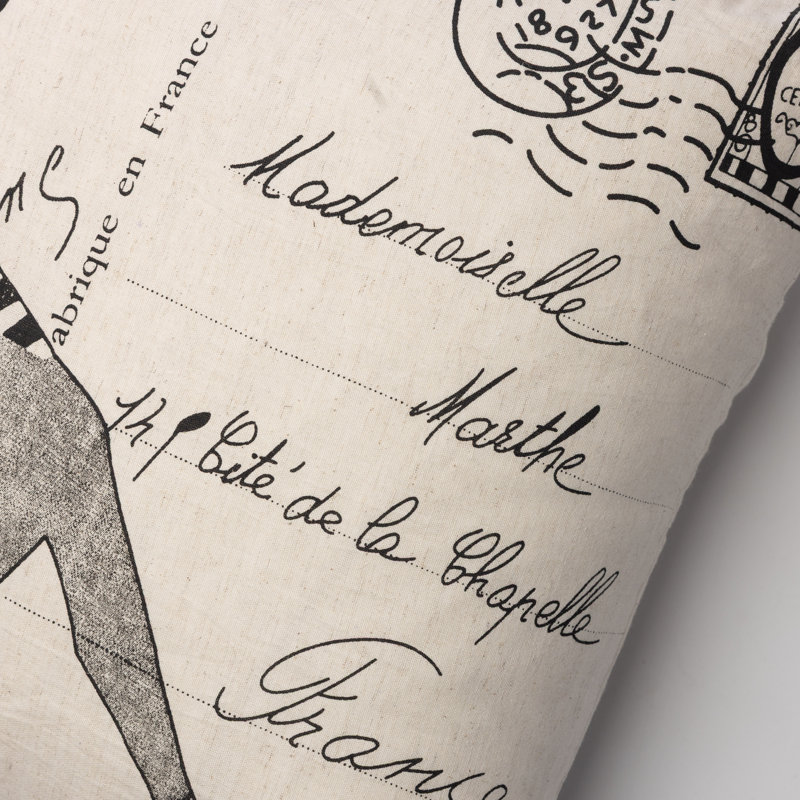 abrique en France
Mademoiselle
Marthe
Cité de la Chapelle
Franc